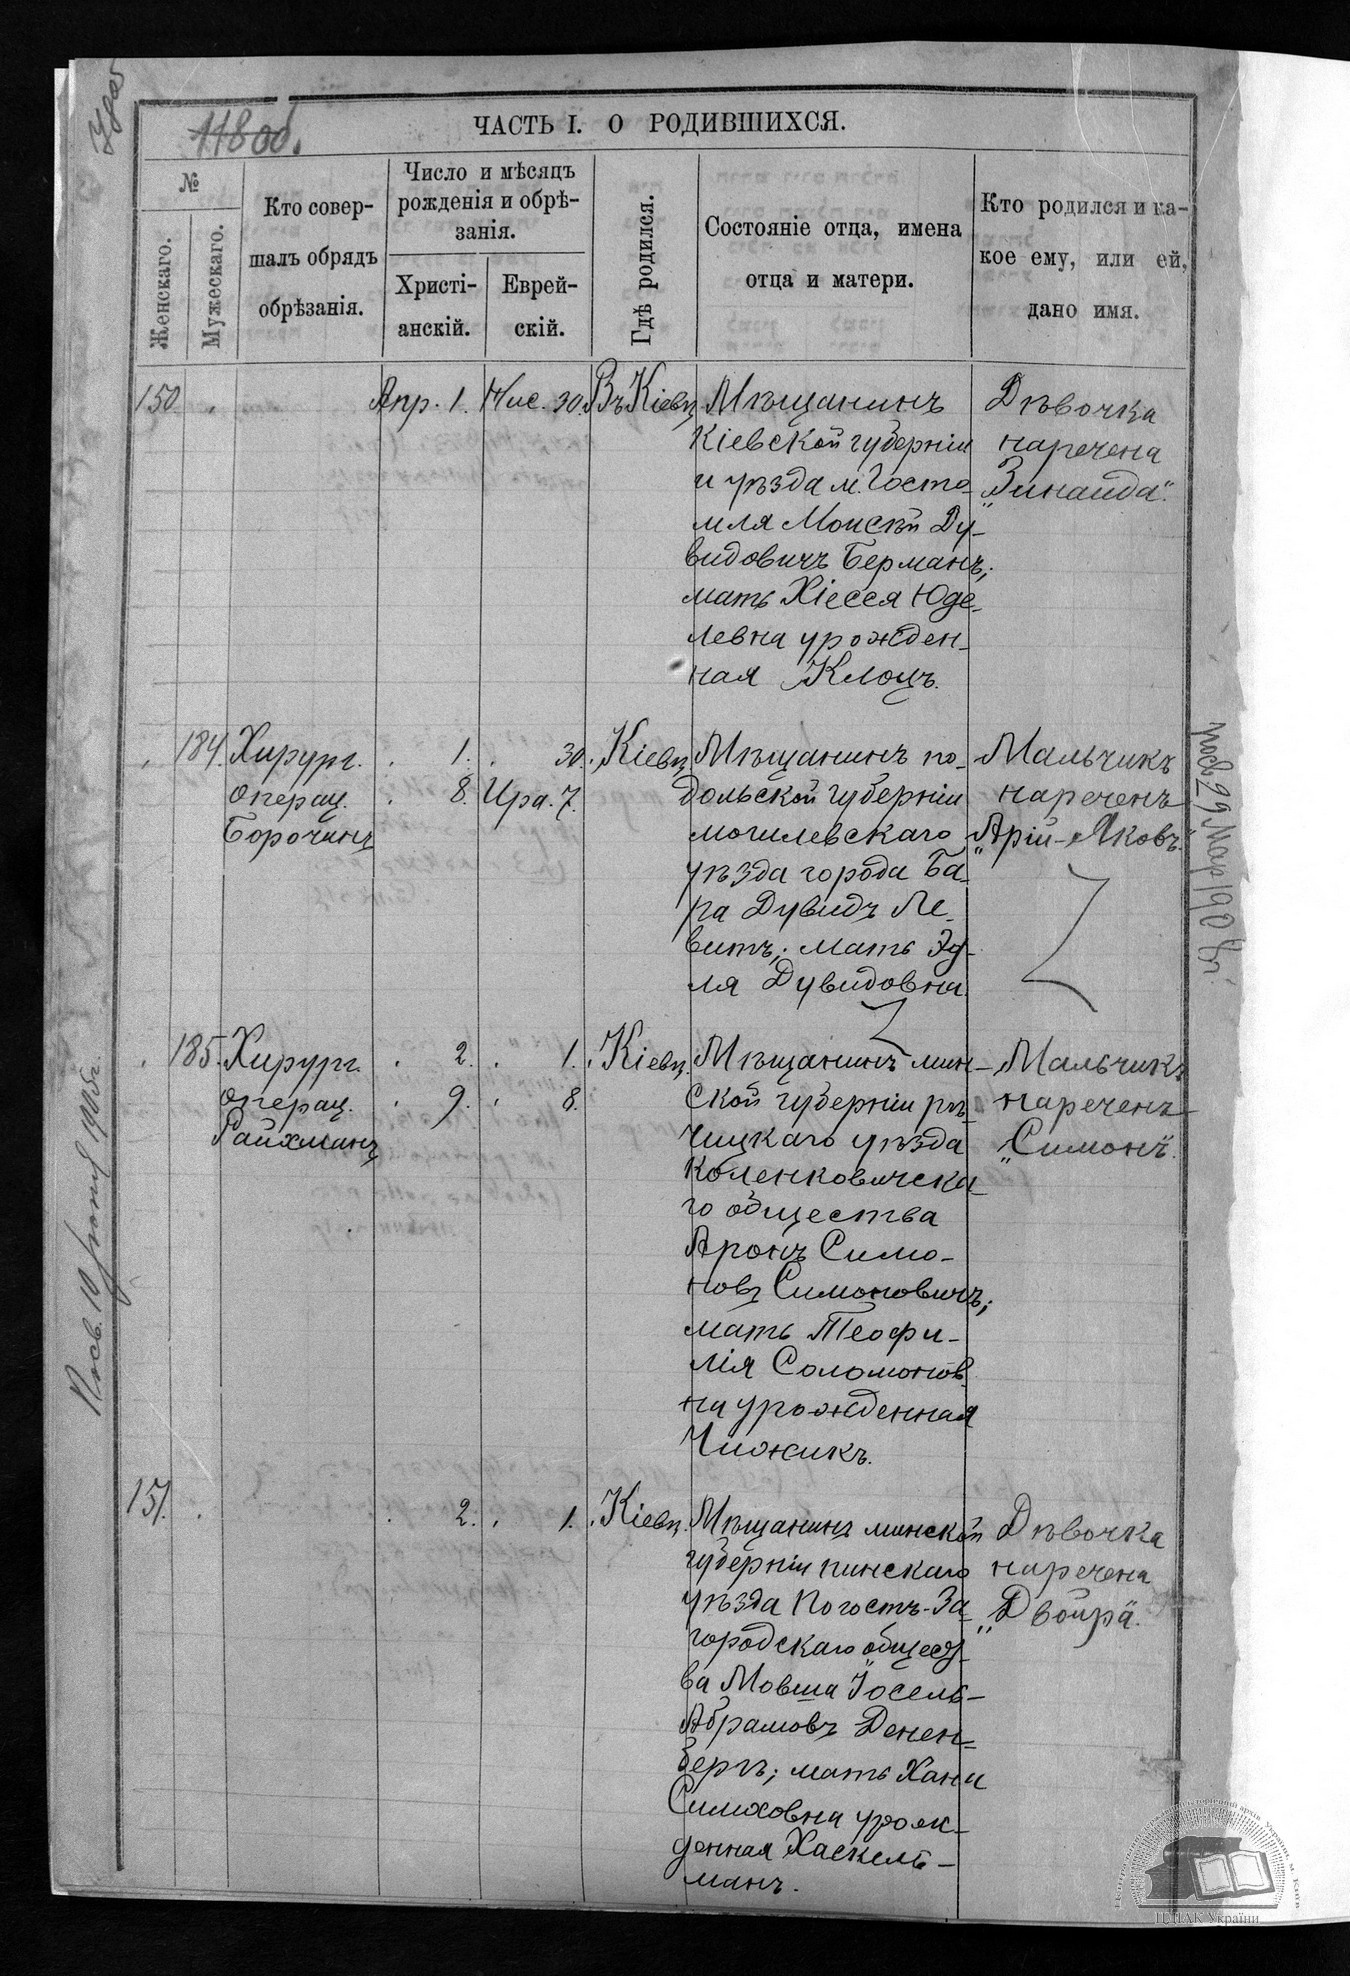 118об.
ЧАСТЬ I. О РОДИВШИХСЯ.
№
Женскаго.
Мужескаго.
Кто совер-
шалъ обрядъ
обрѣзанія.
Число и мѣсяцъ
рожденія и обрѣ-
занія.
Христі-
анскій.
Еврей-
скій.
Гдѣ родился.
Состояніе отца, имена
отца и матери.
Кто родился и ка-
кое ему, или ей,
дано имя.
150
Апр. 1. Нис. 30. Въ Кіевѣ
Мѣщанинъ
Кіевской губерніи
и уѣзда м. Госто-
мля Моисѣй Ду-
видовичъ Берманъ;
мать Хіесся Юде-
левна урожден-
ная Клоцъ.
Дѣвочка
наречена
„Зинаида“.
184. Хирург.
операц.
Борочинъ
1. 30. Кіевѣ
8. Ира. 7.
Мѣщанинъ по-
дольской губерніи
могилевскаго
уѣзда города Ба-
ра Дувидъ Ле-
витъ; мать Эд-
ля Дувидовна.
Мальчикъ
нареченъ
„Арій-Яковъ“.
185. Хирург.
операц.
Райхманъ
2. 1. Кіевѣ.
9. 8.
Мѣщанинъ мин-
ской губерніи рѣ-
чицкаго уѣзда
Коленковическа-
го общества
Аронъ Симо-
новъ Симоновичъ;
мать Теофи-
лія Соломонов-
на урожденная
Чижикъ.
Мальчикъ
нареченъ
„Симонъ“.
151.
2. 1. Кіевѣ.
Мѣщанинъ минской
губерніи пинскаго
уѣзда Погостъ-За-
городскаго общест-
ва Мовша Іосель-
Абрамовъ Денен-
бергъ; мать Хана
Симховна урож-
денная Хаскель-
манъ.
Дѣвочка
наречена
„Двойра“.
ЦДІАК України